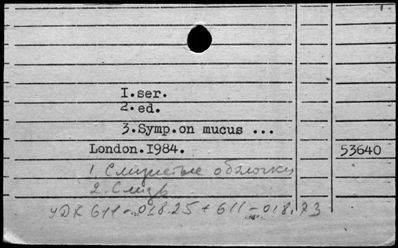 I.ser.
2.ed.
3.Symp.on mucus ...
London.I984. 53640
1. Слизистые оболочки
2. Слизь
УДК 611-018.25 + 611-018.73